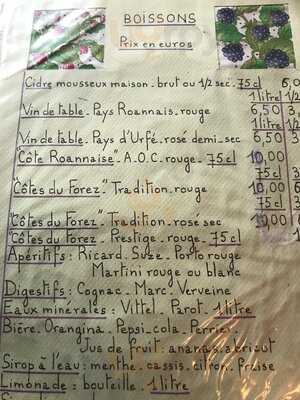 BOISSONS
Prix en euros
Cidre mousseux maison. brut ou 1/2 sec. 75cl
1 litre 1/2
Vin de table. Pays Roannais. rouge 6,50
1 litre 1/2
Vin de table. Pays d'Urfé. rosé demi-sec 6,50
"Côte Roannaise". A.O.C. rouge. 75cl 10,00
75cl
"Côtes du Forez". Tradition. rouge 10,00
75cl
"Côtes du Forez". Tradition. rosé sec 10,00
"Côtes du Forez. Prestige. rouge. 75cl
Apéritifs : Ricard. Suze. Porto rouge
Martini rouge ou blanc
Digestifs : Cognac. Marc. Verveine
Eaux minérales : Vittel. Parot. 1 litre
Bière. Orangina. Pepsi-cola. Perrier.
Jus de fruit : ananas. abricot
Sirop à l'eau : menthe. cassis. citron. fraise
Limonade : bouteille. 1 litre